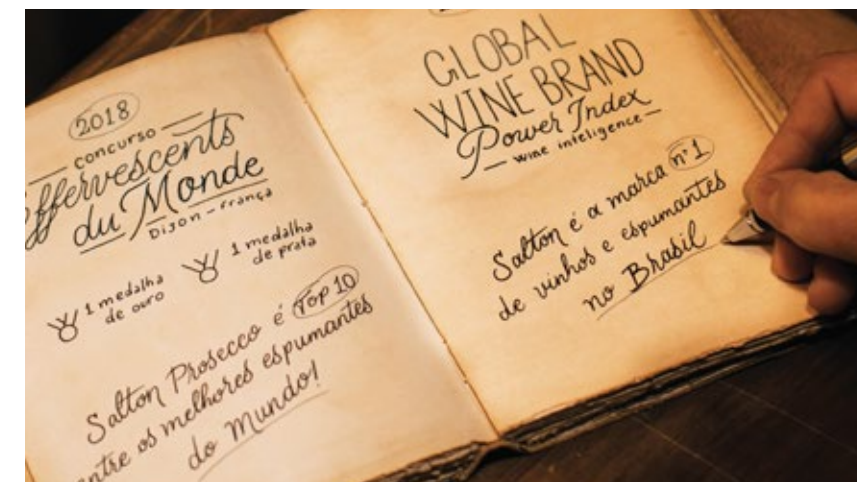 2018
concurso
Effervescents
du Monde
Dijon - França
1 medalha
de ouro
1 medalha
de prata
Salton Prosecco é Top 10
entre os melhores espumantes
do Mundo!
GLOBAL
WINE BRAND
Power Index
wine inteligence
Salton é a marca nº1
de vinhos e espumantes
no Brasil